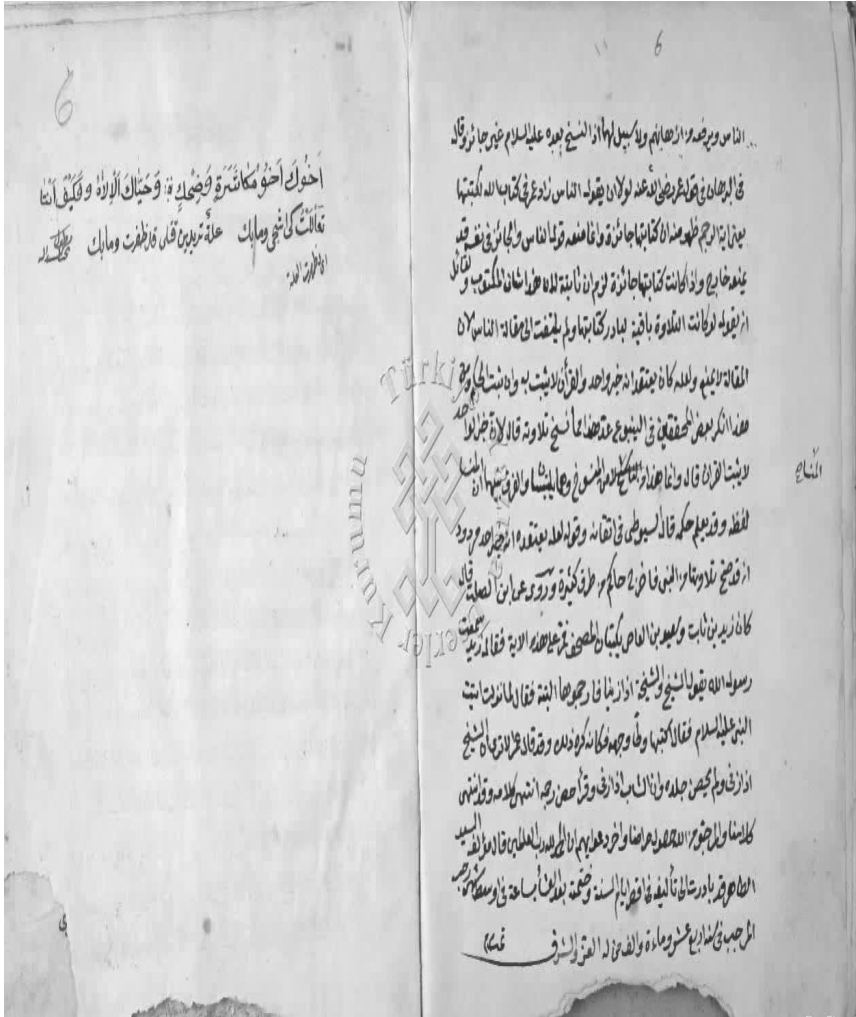 6
الناس ويرفعه من اذهانهم ولا سبيل لهما اذ النسخ بعده عليه السلام غير جائز وقال
فى البرهان فى قول عمر رضى الله عنه لولا ان يقول الناس زاد عمر فى كتاب الله لكتبتها
يعنى اية الرجم ظهر منه ان كتابتها جائزة وانما منعه قول الناس والجائز فى نفسه قد
يمنعه خارج واذا كانت كتابتها جائزة لزم ان ثابتة لان هذا شان المكتوب ولقائل
ان يقول لو كانت التلاوة باقية لبادر كتابتها ولم يلتفت الى مقالة الناس لان
المقالة لا يمنع ولعله كان يعتقد انه خبر واحد والقرأن لا يثبت به وان ثبت الحكم ومن
هذا انكر بعض المحققين فى الينبوع عد هذا مما نسخ تلاوته قال لان خبر الواحد
لا يثبت القران قال وانما هذا من المنسأ لا من المنسوخ وهما يلتبسان والفرق بينهما ان المنسأ
لفظه وقد يعلم حكمه قال السيوطى فى اتقانه وقوله لعله يعتقده انه خبر واحد مردود
اذ قد صح تلاوتها من النبى فاخرج حاكم من طرق كثيرة وروى عن ابن الصلت قال
كان زيد بن ثابت وسعيد بن العاص يكتبان المصحف فمر على هذه الاية فقال زيد سمعت
رسول الله يقول الشيخ والشيخة اذا زنيا فارجموها البتة فقال لما نزلت اتيت
النبى عليه السلام فقال اكتبها ولى وجهه فكانه كره ذلك وقد قال عمر الا ترى ان الشيخ
اذا زنى ولم يحصن جلد وان الشاب اذا زنى وقد احصن رجم انتهى كلامه وقد انتهى
كلامنا والمرجو من الله حصول مرامنا واخر دعويهم ان الحمد لله رب العالمين قال مؤلفه السيد
قد بادرت الى تأليفه فى اقصر ايام السنة وختمته بعد فى اوسط شهر رجب
المرجب فى سنة اربع عشر وماءة والف من له العز والشرف تمت
اخُوكَ اخُو مُكاشَرَةٍ وَضِحْكٍ وَحَيَّاكَ الْاِلٰهُ وَكَيْفَ اَنْتا
تعاللت كى اشجى ومابك علة تريدين قتلى قد ظفرت ومابك
6